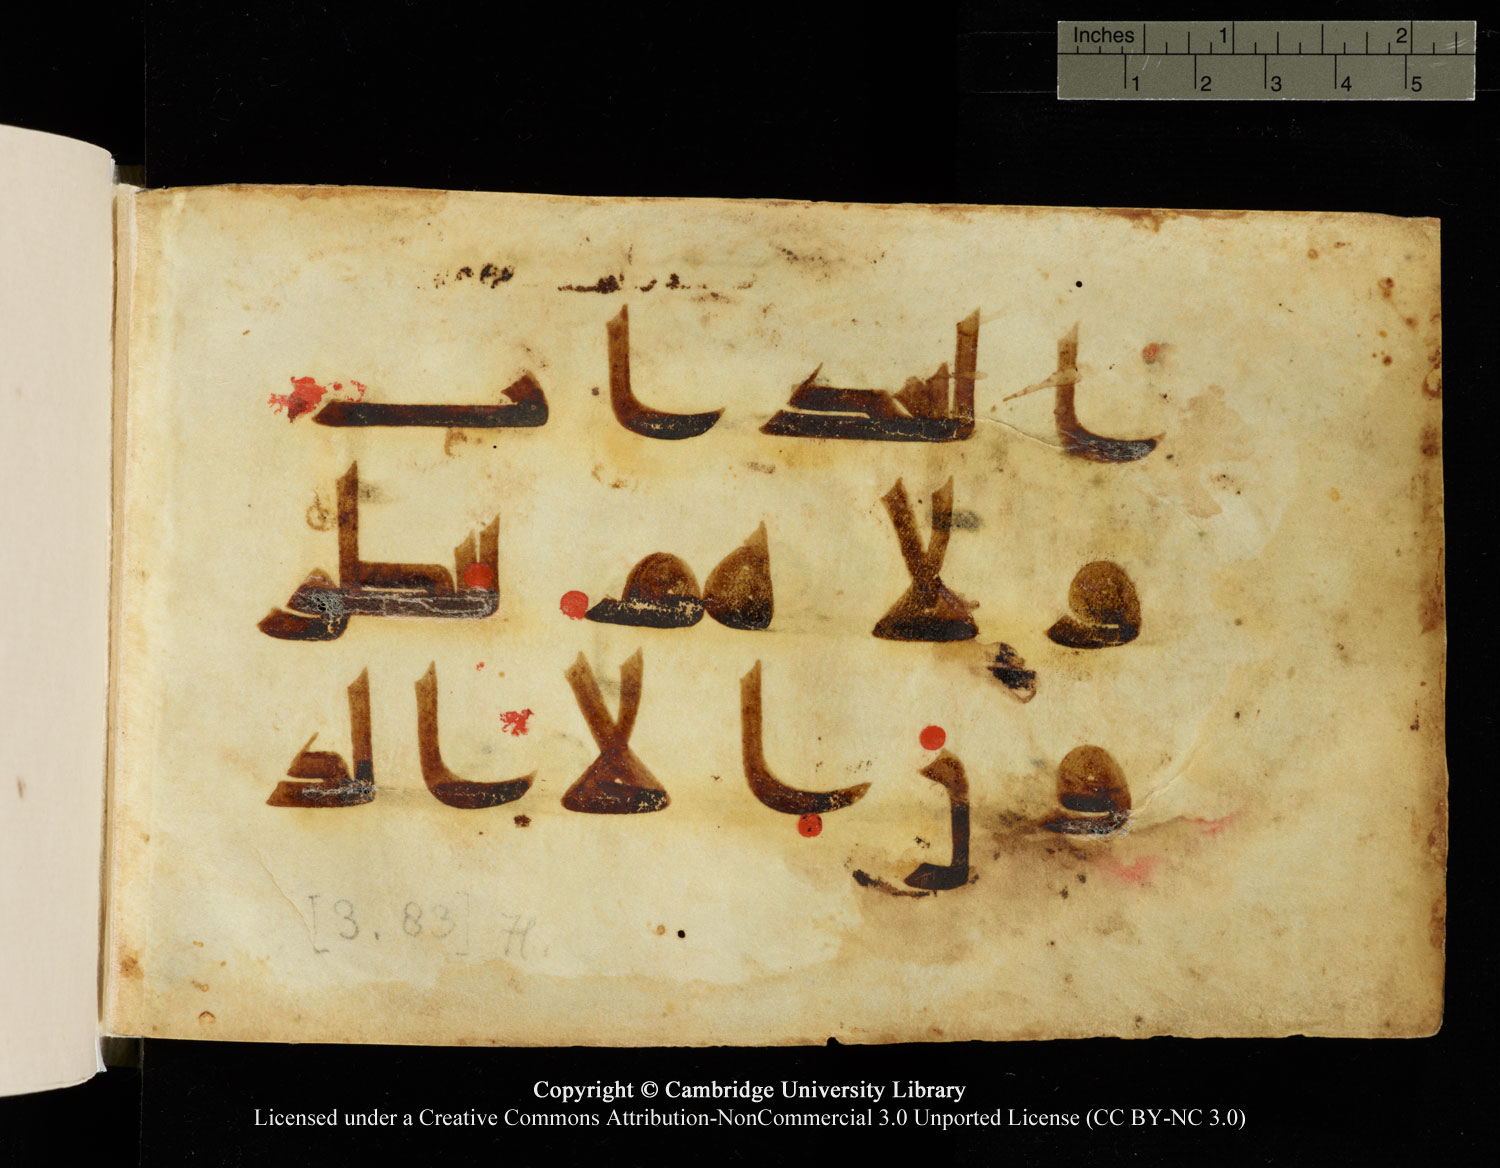 Inches 1 2
1 2 3 4 5
العذاب
ولا هم ينظر
ون الا الذ
[3. 83] H.
Copyright © Cambridge University Library
Licensed under a Creative Commons Attribution-NonCommercial 3.0 Unported License (CC BY-NC 3.0)